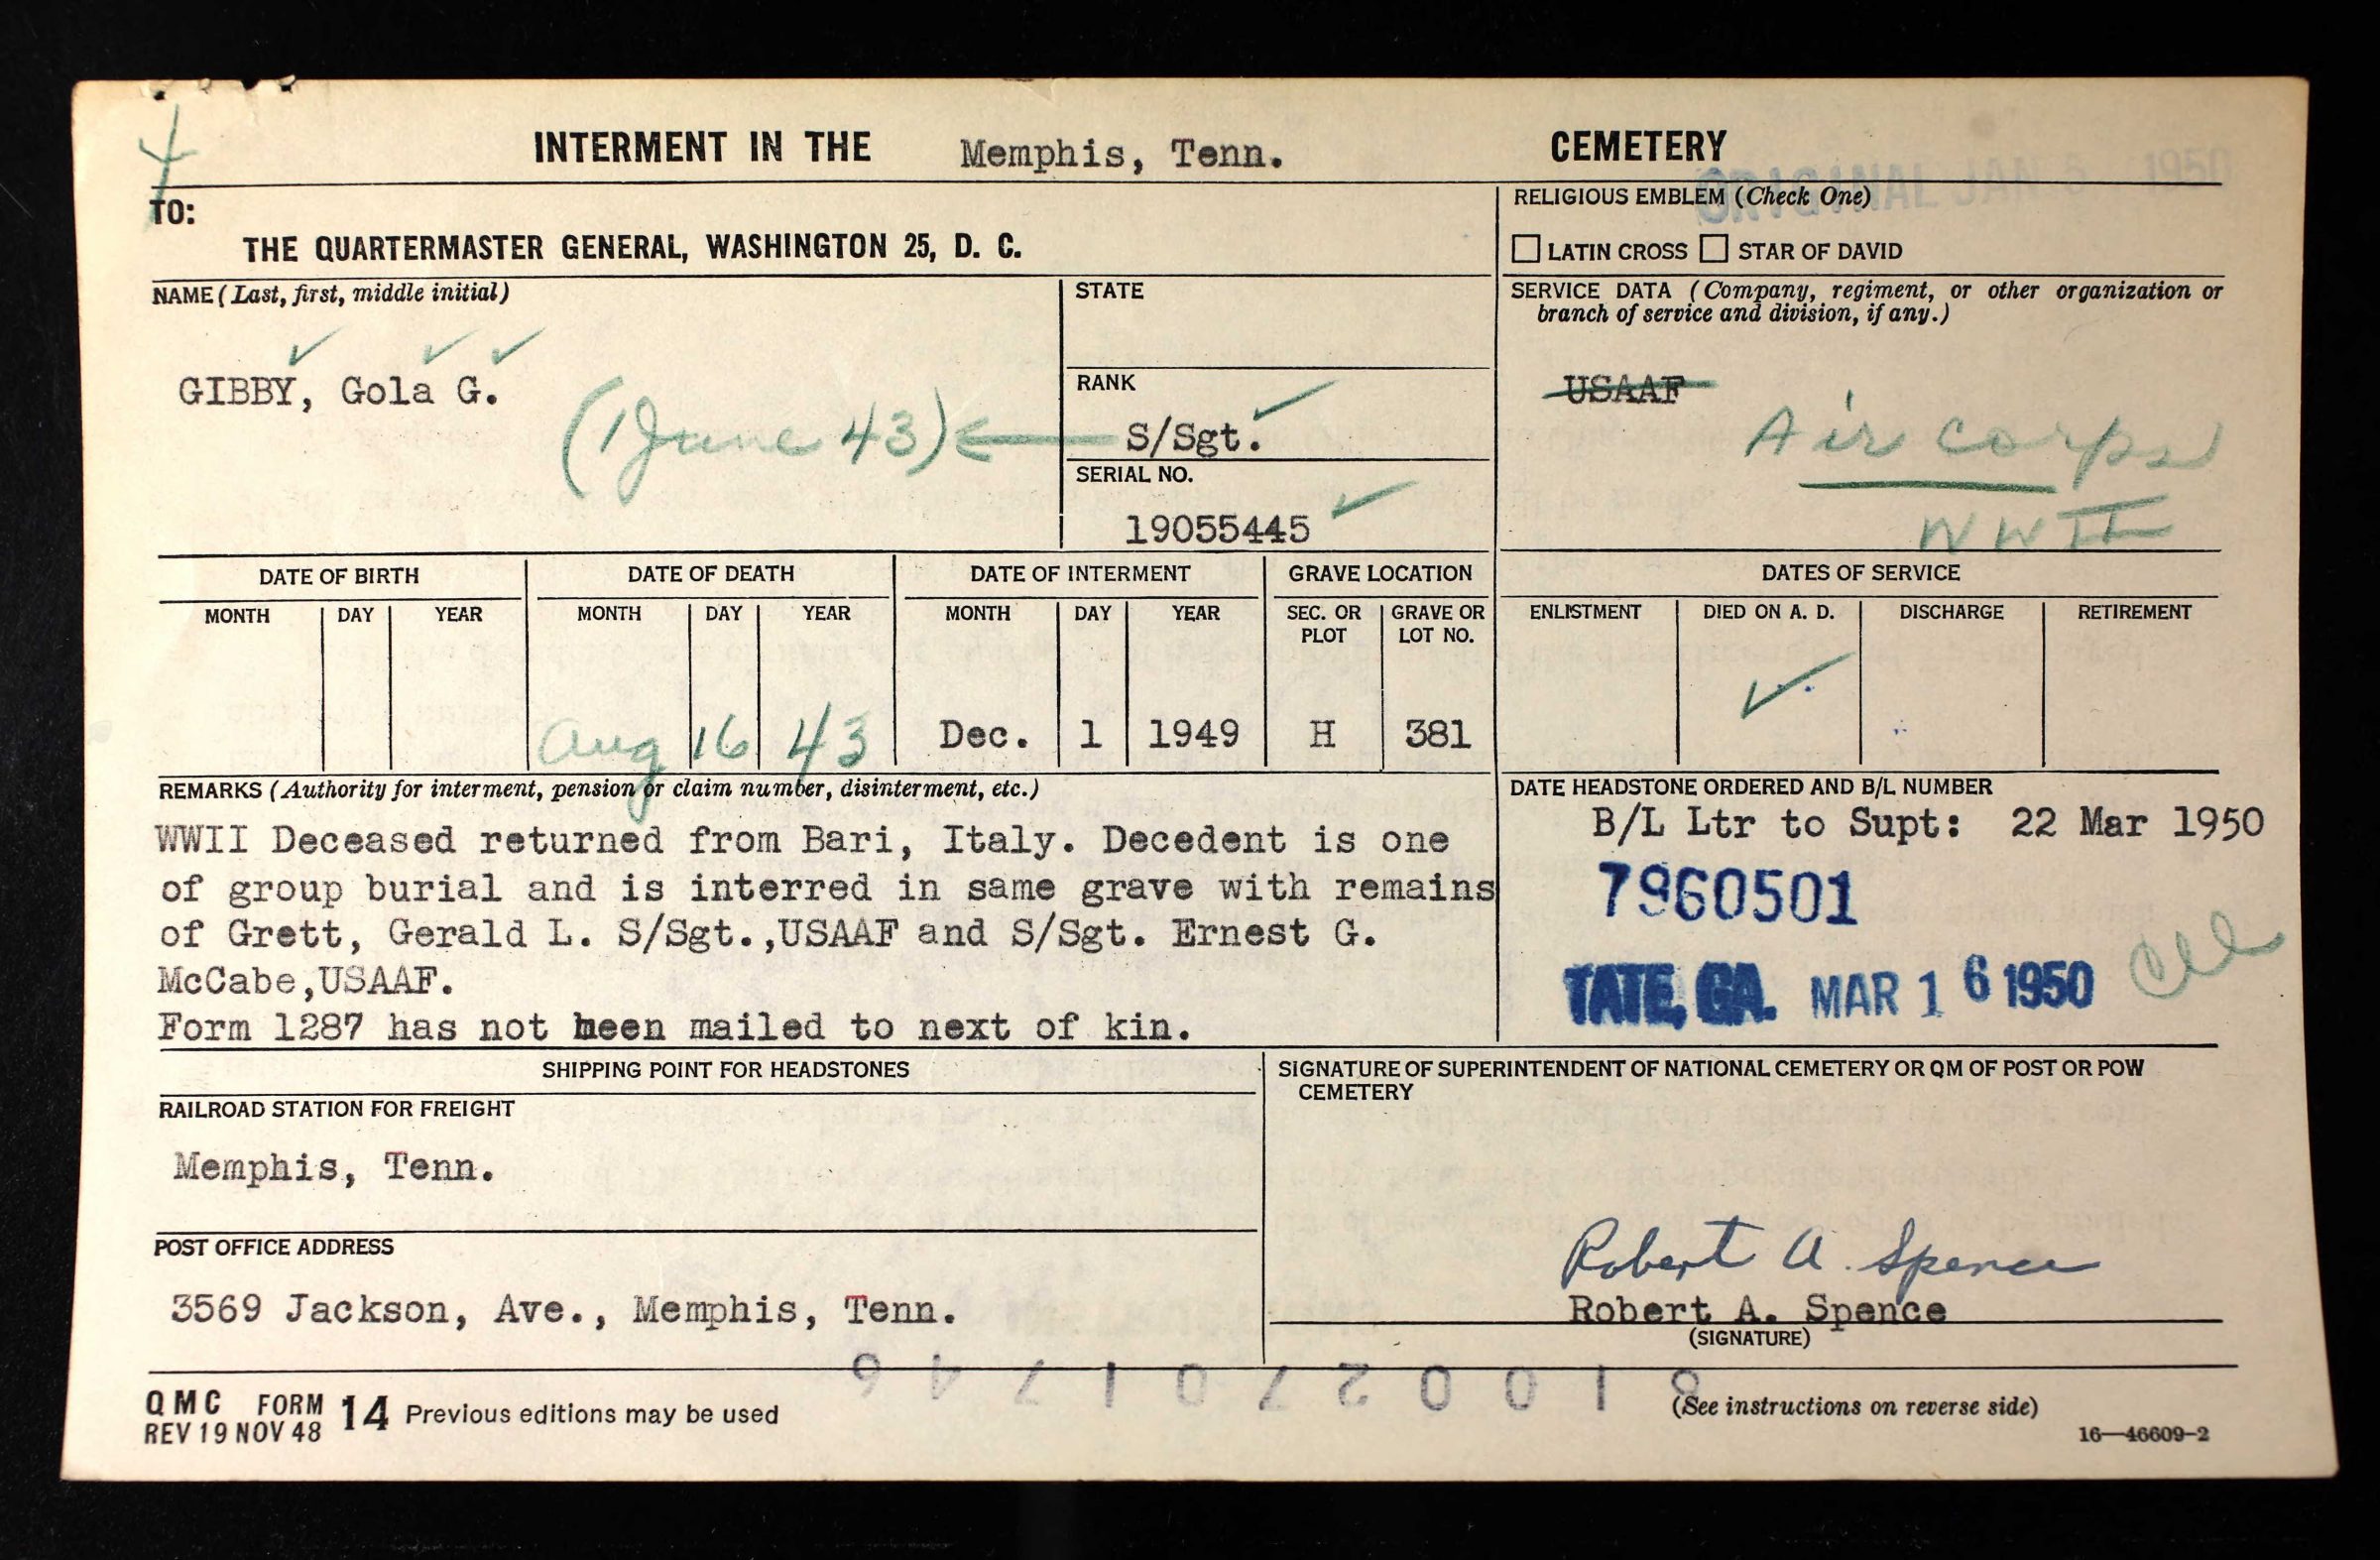 INTERMENT IN THE Memphis, Tenn. CEMETERY
ORIGINAL JAN 5 1950
TO:
THE QUARTERMASTER GENERAL, WASHINGTON 25, D. C.
RELIGIOUS EMBLEM (Check One)
LATIN CROSS STAR OF DAVID
NAME (Last, first, middle initial)
GIBBY, Gola G.
(1 June 43)
STATE
RANK
S/Sgt.
SERIAL NO.
19055445
SERVICE DATA (Company, regiment, or other organization or
branch of service and division, if any.)
USAAF
Air Corps
WWII
DATE OF BIRTH DATE OF DEATH DATE OF INTERMENT GRAVE LOCATION DATES OF SERVICE
MONTH DAY YEAR MONTH DAY YEAR MONTH DAY YEAR SEC. OR PLOT GRAVE OR LOT NO. ENLISTMENT DIED ON A. D. DISCHARGE RETIREMENT
Aug 16 43 Dec. 1 1949 H 381
REMARKS (Authority for interment, pension or claim number, disinterment, etc.)
WWII Deceased returned from Bari, Italy. Decedent is one
of group burial and is interred in same grave with remains
of Grett, Gerald L. S/Sgt.,USAAF and S/Sgt. Ernest G.
McCabe,USAAF.
Form 1287 has not been mailed to next of kin.
DATE HEADSTONE ORDERED AND B/L NUMBER
B/L Ltr to Supt: 22 Mar 1950
7960501
TATE, GA. MAR 16 1950
SHIPPING POINT FOR HEADSTONES
RAILROAD STATION FOR FREIGHT
Memphis, Tenn.
POST OFFICE ADDRESS
3569 Jackson, Ave., Memphis, Tenn.
SIGNATURE OF SUPERINTENDENT OF NATIONAL CEMETERY OR QM OF POST OR POW
CEMETERY
Robert A. Spence
Robert A. Spence
(SIGNATURE)
QMC FORM 14 Previous editions may be used
REV 19 NOV 48
(See instructions on reverse side)
16—46609-2